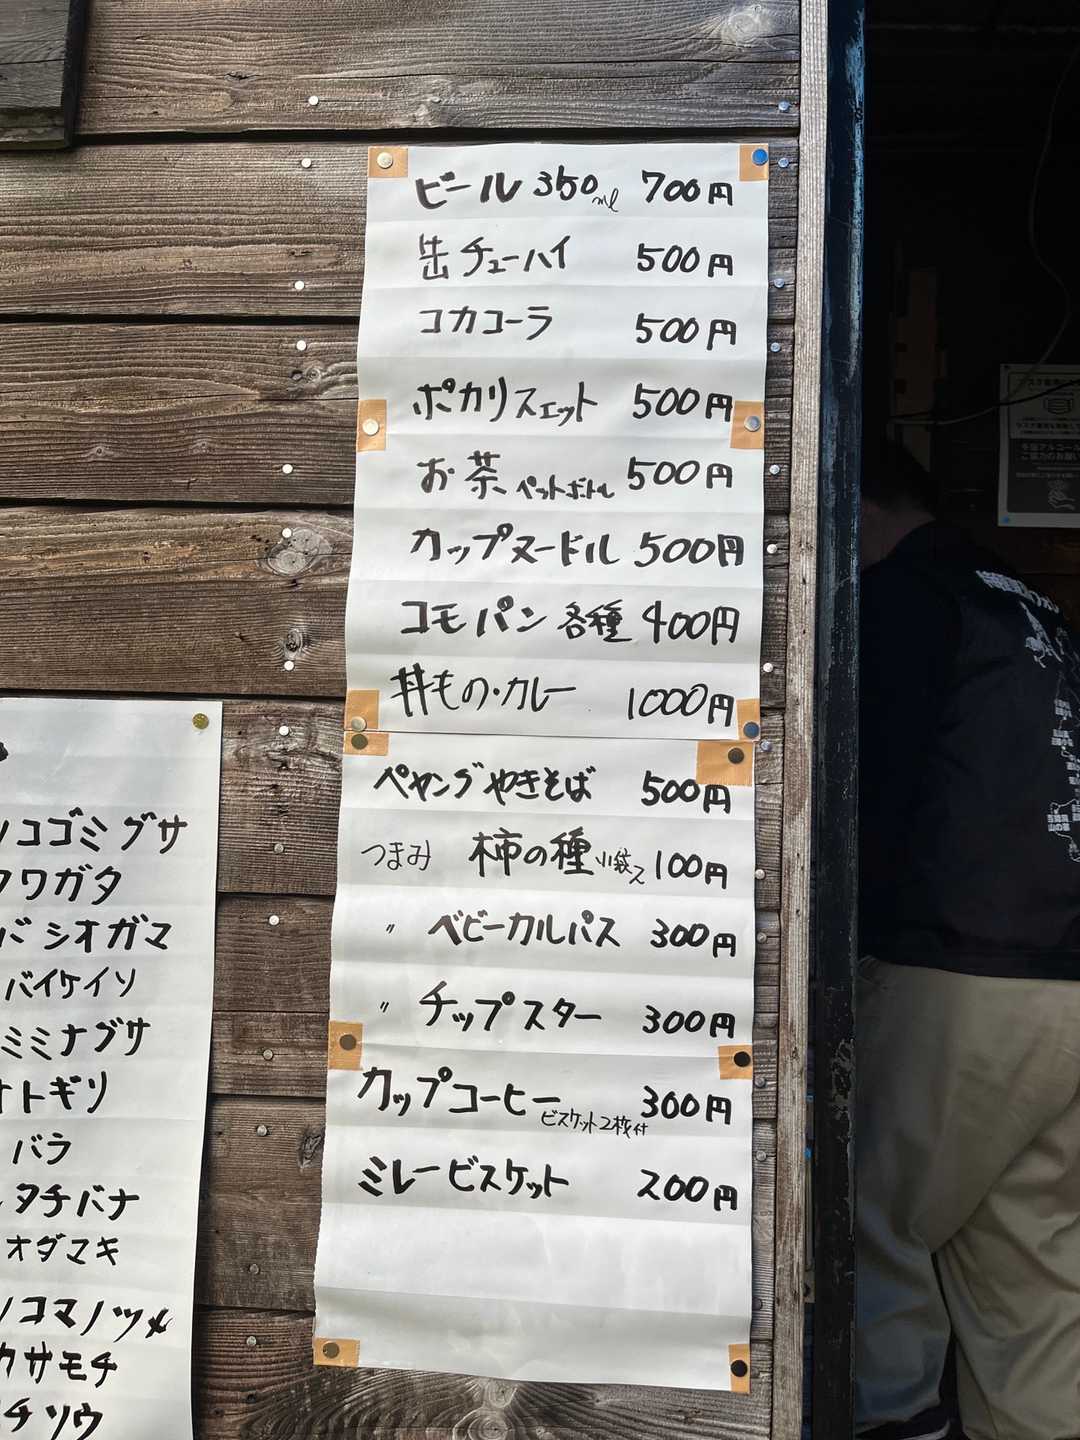 ビール 350ml 700円
缶チューハイ 500円
コカコーラ 500円
ポカリスエット 500円
お茶 ペットボトル 500円
カップヌードル 500円
コモパン 各種 400円
丼もの・カレー 1000円
ペヤングやきそば 500円
つまみ 柿の種 小袋入 100円
〃 ベビーカルパス 300円
〃 チップスター 300円
カップコーヒー 300円
ビスケット2枚付
ミレービスケット 200円
コゴミグサ
クワガタ
バシオガマ
バイケイソ
ミミナグサ
オトギソ
バラ
タチバナ
オダマキ
コマノツメ
カサモチ
チソウ